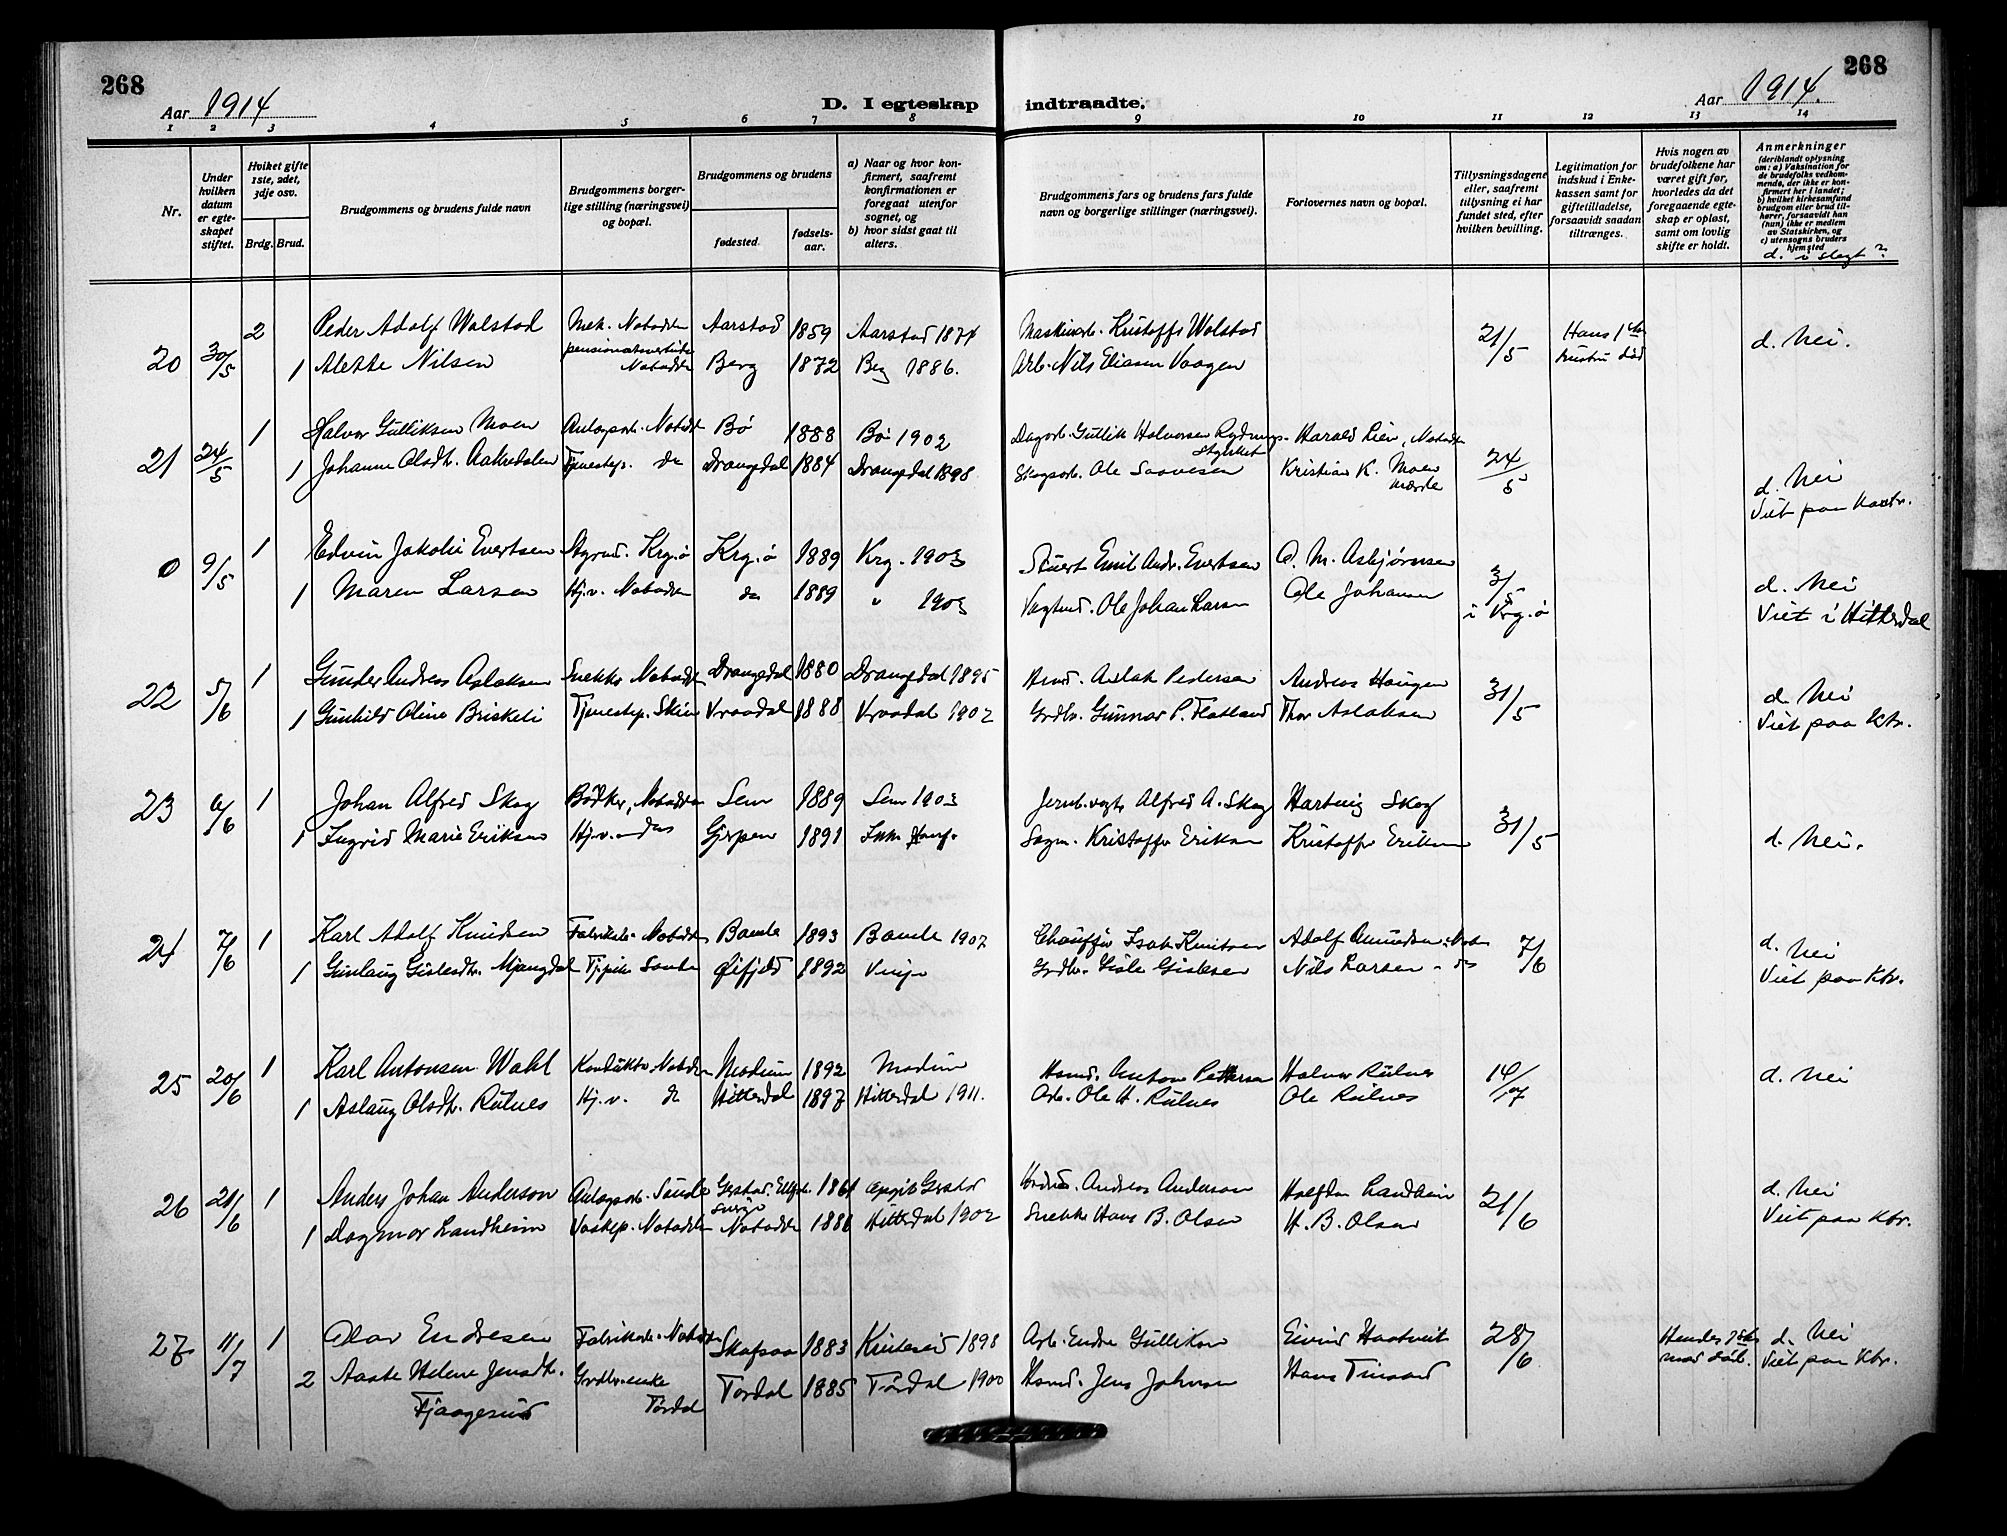 268
Aar 1914
D. I egteskap indtraadte.
Aar 1914.
268
1 2 3 4 5 6 7 8 9 10 11 12 13 14
Nr.
Under hvilken datum er egteskapet stiftet.
Hviket gifte 1ste, 2det, 3dje osv.
Brdg. Brud.
Brudgommens og brudens fulde navn
Brudgommens borgerlige stilling (næringsvei) og bopæl.
Brudgommens og brudens
fødested.
fødselsaar.
a) Naar og hvor konfirmert, saafremt konfirmationen er foregaat utenfor sognet, og
b) hvor sidst gaat til alters.
Brudgommens fars og brudens fars fulde navn og borgerlige stillinger (næringsvei).
Forlovernes navn og bopæl.
Tillysningsdagene eller, saafremt tillysning ei har fundet sted, efter hvilken bevilling.
Legitimation for indskud i Enkekassen samt for giftetilladelse, forsaavidt saadan tiltrænges.
Hvis nogen av brudefolkene har været gift før, hvorledes da det foregaaende egteskap er opløst, samt om lovlig skifte er holdt.
Anmerkninger
(deriblandt oplysning om: a) Vaksination for de brudefolks vedkommende, der ikke er konfirmert her i landet; b) hvilket kirkesamfund brudgom eller brud tilhører, forsaavidt han (hun) ikke er medlem av Statskirken, og c) utensogns bruders hjemsted
d. i slegt?
20 30/5 2 Peder Adolf Wolstad Mek. Notodden Aarstad 1859 Aarstad 1874 Kristoffs Wolstad 21/5 Hans 1ste hustru død d. Nei.
1 Alette Nilsen Notodden Berg 1872 Berg 1886. Arb. Nils Eliasen Vaagen
21 24/5 1 Halvor Gulliksen Moen Notodd Bø 1888 Bø 1902 Dagarb. Gullik Halvorsen Harald Lien, Notodden 24/5 d. Nei
1 Johanne Olsdtr. Aakredalen Tjenestep. do Drangedal 1884 Drangedal 1898 Skogsarb. Ole Kristian K. Moen Viet paa Kontr.
0 9/5 1 Edvin Jakobi Evertsen Styrmd. Krg.ø Krg.ø 1889 Krg. 1903 Stuert Emil Andr. Evertsen O. M. Asbjørnsen 3/5 i Krg.ø d. Nei
1 Maren Larsen Hj.v. Notodden do 1889 " 1903 Vagtmd. Ole Johan Larsen Ole Johansen Viet i Hitterdal
22 5/6 1 Gunder Andreas Aslaksen Snekker Notodden Drangedal 1880 Drangedal 1895 Hmd. Aslak Pedersen Andreas Haugen 31/5 d. Nei
1 Gunhild Oline Brisketi Tjenestep. Skien Vraadal 1888 Vraadal 1902 Grdbr. Gunnar P. Flatland Thor Aslaksen Viet paa Ktr.
23 6/6 1 Johan Alfred Skog Bødker, Notodden Sem 1889 Sem 1903 Jernb.vogt Alfred A. Skog Hartvig Skog 31/5 d. Nei.
1 Ingrid Marie Eriksen Hj.v. do Gjerpen 1891 Sagm. Kristoffer Eriksen Kristoffer Eriksen
24 7/6 1 Karl Adolf Knudsen Fabrikarb. Notodden Bamle 1893 Bamle 1907 Chauffør Isak Knutsen Adolf Amundsen, Not. 7/6 d. Nei
1 Gunlaug Gislesdtr. Mjaugedal Øifjeld 1892 Vinje Grdbr. Gisle Gislesen Nils Larsen - do Viet paa Ktr.
25 20/6 1 Karl Antonsen Wahl Konduktør Notodden Modum 1892 Modum Hsmd. Anton Pettersen Halvor Rulnes 14/7 d. Nei
1 Aslaug Olsdtr. Rulnes Hj.v. do Hitterdal 1897 Hitterdal 1911. Arb. Ole H. Rulnes Ole Rulnes
26 21/6 1 Anders Johan Anderson Anlegsarb. Gestad. 1861 Andreas Anderson Halfdan Landheim 21/6 d. Nei
1 Dagmar Landheim Vaskep. Notodden Notodden 1886 Hitterdal 1902 Snekker Hans B. Olsen H. B. Olsen Viet paa Ktr.
27 11/7 1 Olav Endresen Fabrikarb. Notodden Skafsaa 1883 Kviteseid 1898 Arb. Endre Gulliksen Eivind Haatveit 28/6 Hendes 1ste mand død. d. Nei
2 Aaste Helene Jensdtr. Fjaagesund Grdbr.enke Tørdal Tørdal 1885 Tørdal 1900 Hsmd. Jens Johnsen Hans Tinsand Viet paa Ktr.